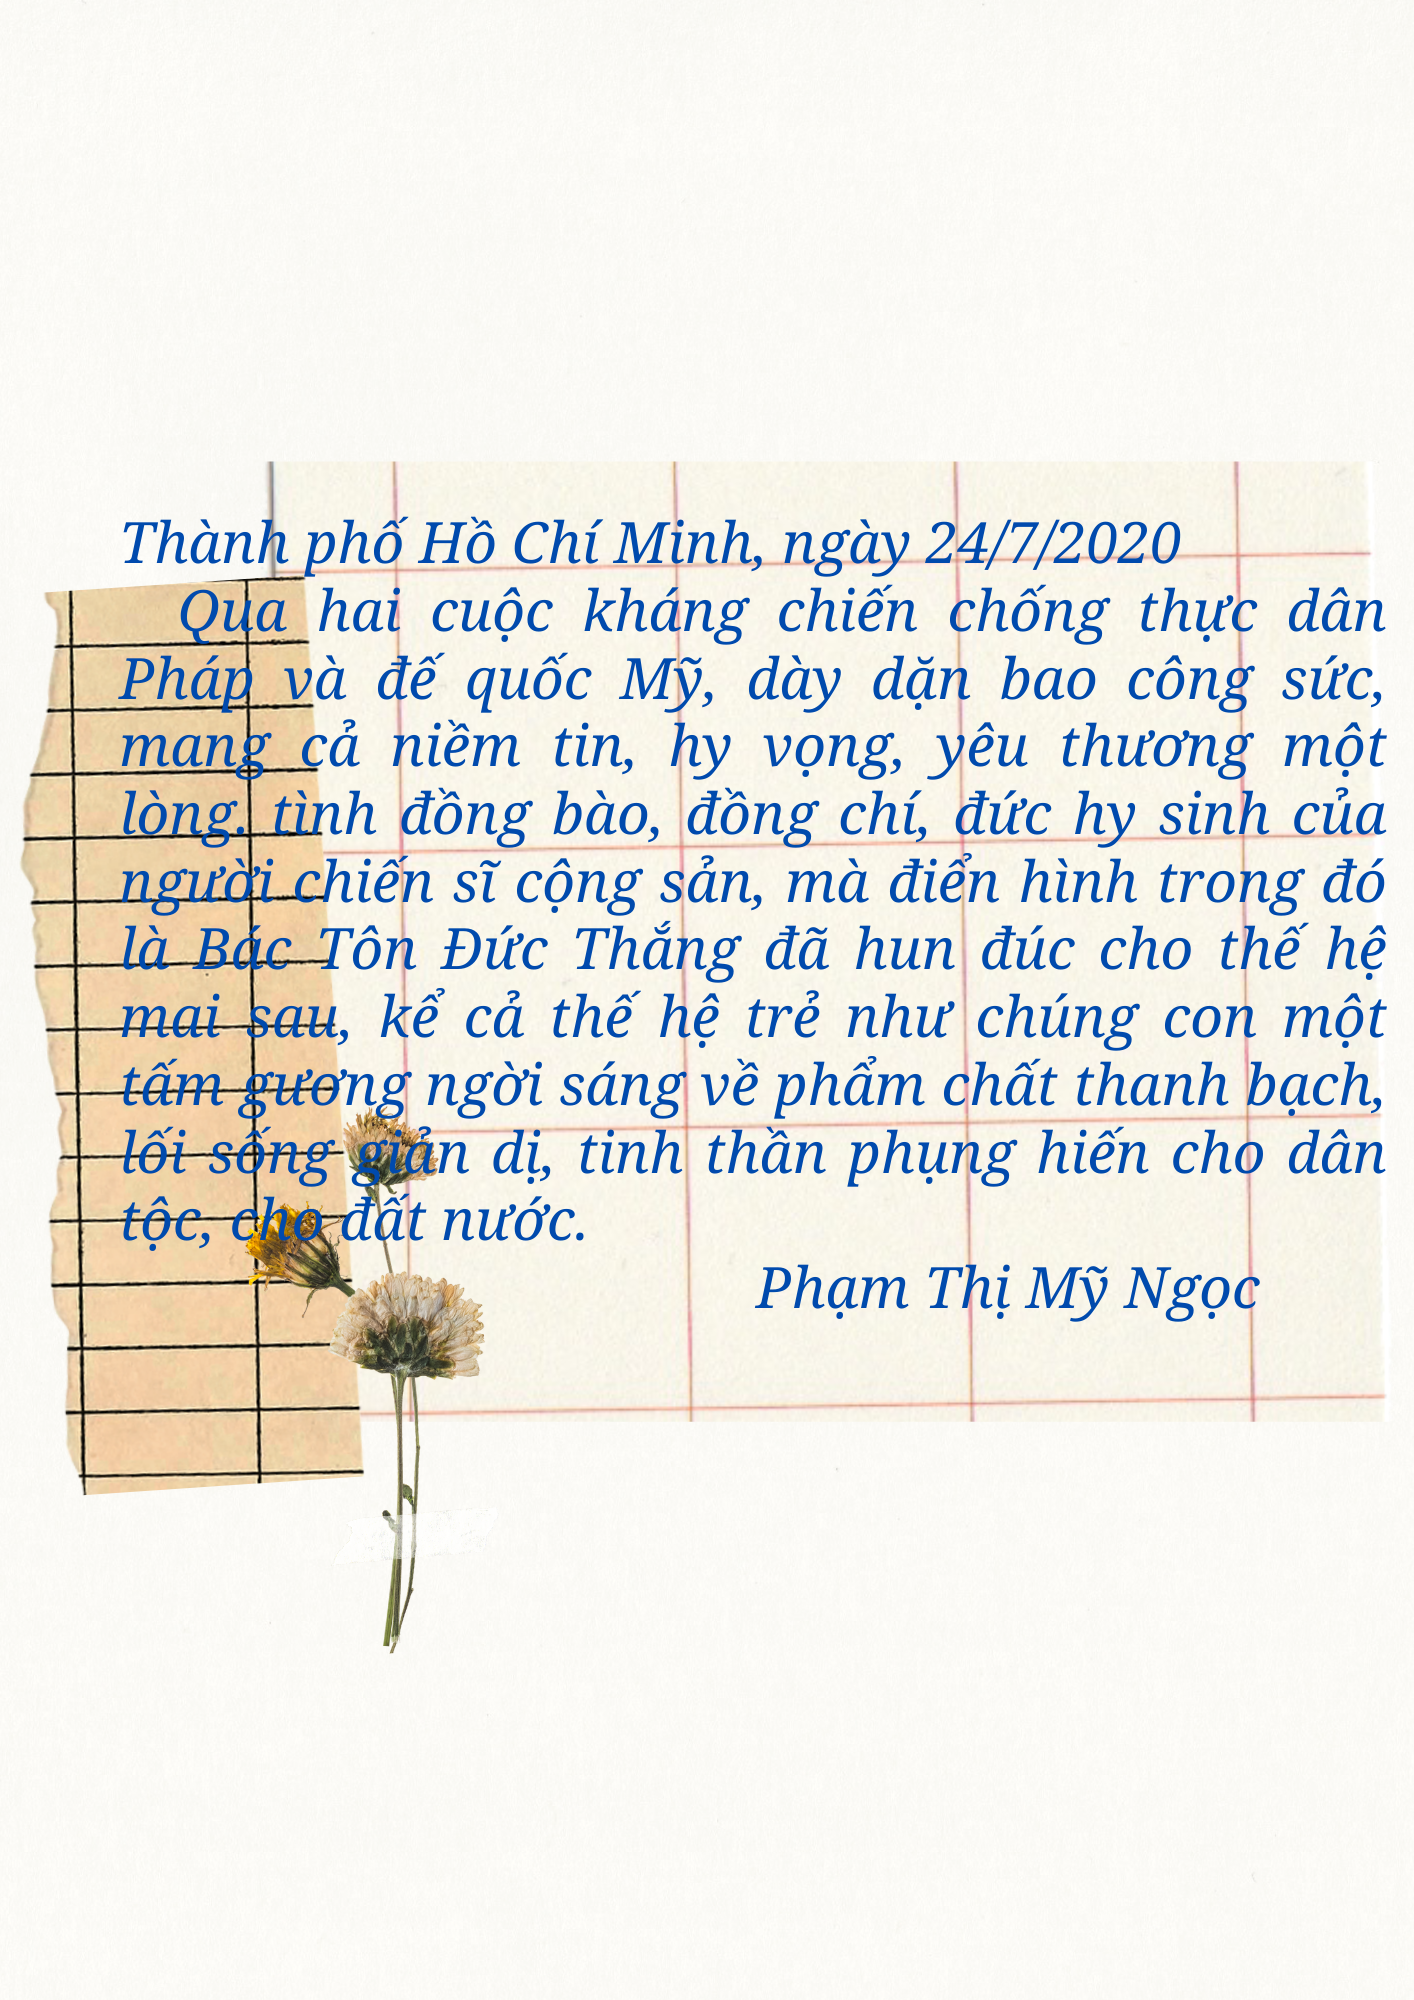 Thành phố Hồ Chí Minh, ngày 24/7/2020
Qua hai cuộc kháng chiến chống thực dân
Pháp và đế quốc Mỹ, dày dặn bao công sức,
mang cả niềm tin, hy vọng, yêu thương một
lòng. tình đồng bào, đồng chí, đức hy sinh của
người chiến sĩ cộng sản, mà điển hình trong đó
là Bác Tôn Đức Thắng đã hun đúc cho thế hệ
mai sau, kể cả thế hệ trẻ như chúng con một
tấm gương ngời sáng về phẩm chất thanh bạch,
lối sống giản dị, tinh thần phụng hiến cho dân
tộc, cho đất nước.
Phạm Thị Mỹ Ngọc